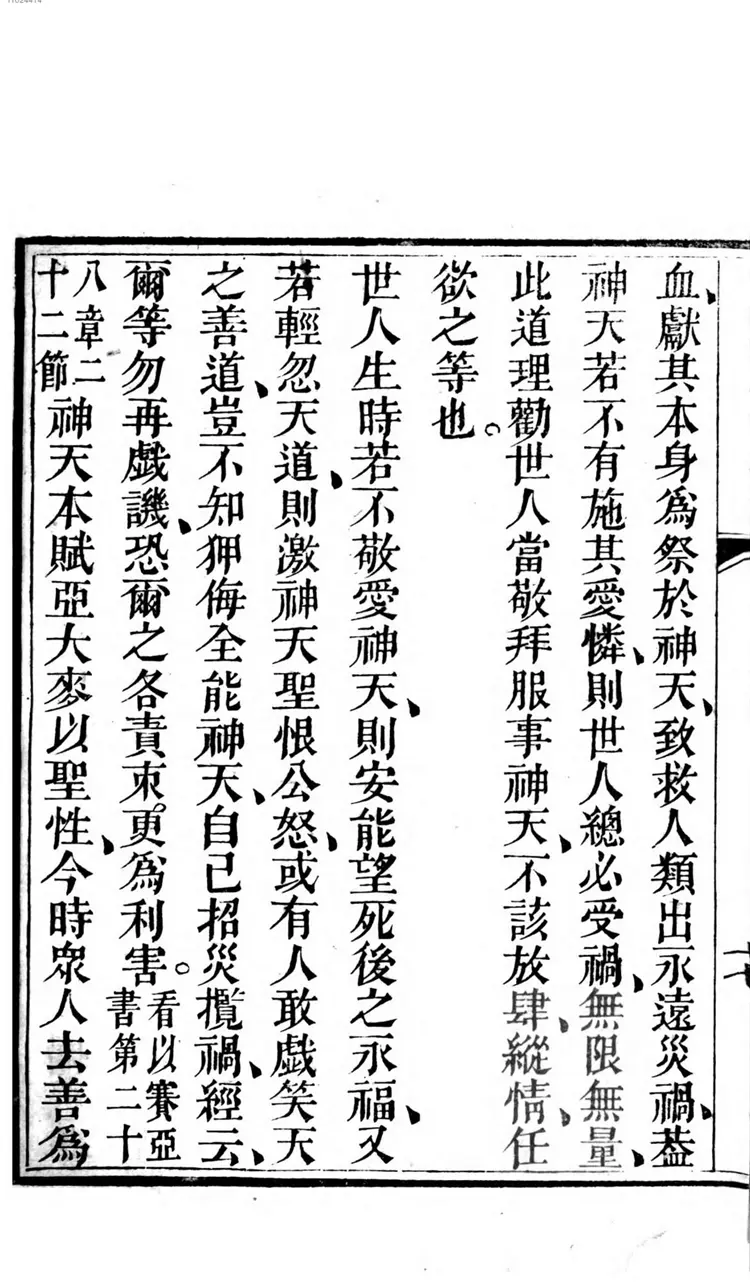 血、獻其本身爲祭於神天、致救人類出永遠災禍、葢
神天若不有施其愛憐、則世人總必受禍、無限無量、
此道理勸世人當敬拜服事神天、不該放肆、縱情、任
欲之等也。
世人生時若不敬愛神天、則安能望死後之永福、又
若輕忽天道、則激神天聖恨公怒、或有人敢戲笑天
之善道、豈不知狎侮全能神天、自己招災攬禍、經云、
爾等勿再戲譏、恐爾之各責束更爲利害。看以賽亞書第二十
八章二十二節神天本賦亞大麥以聖性、今時眾人去善爲
十七